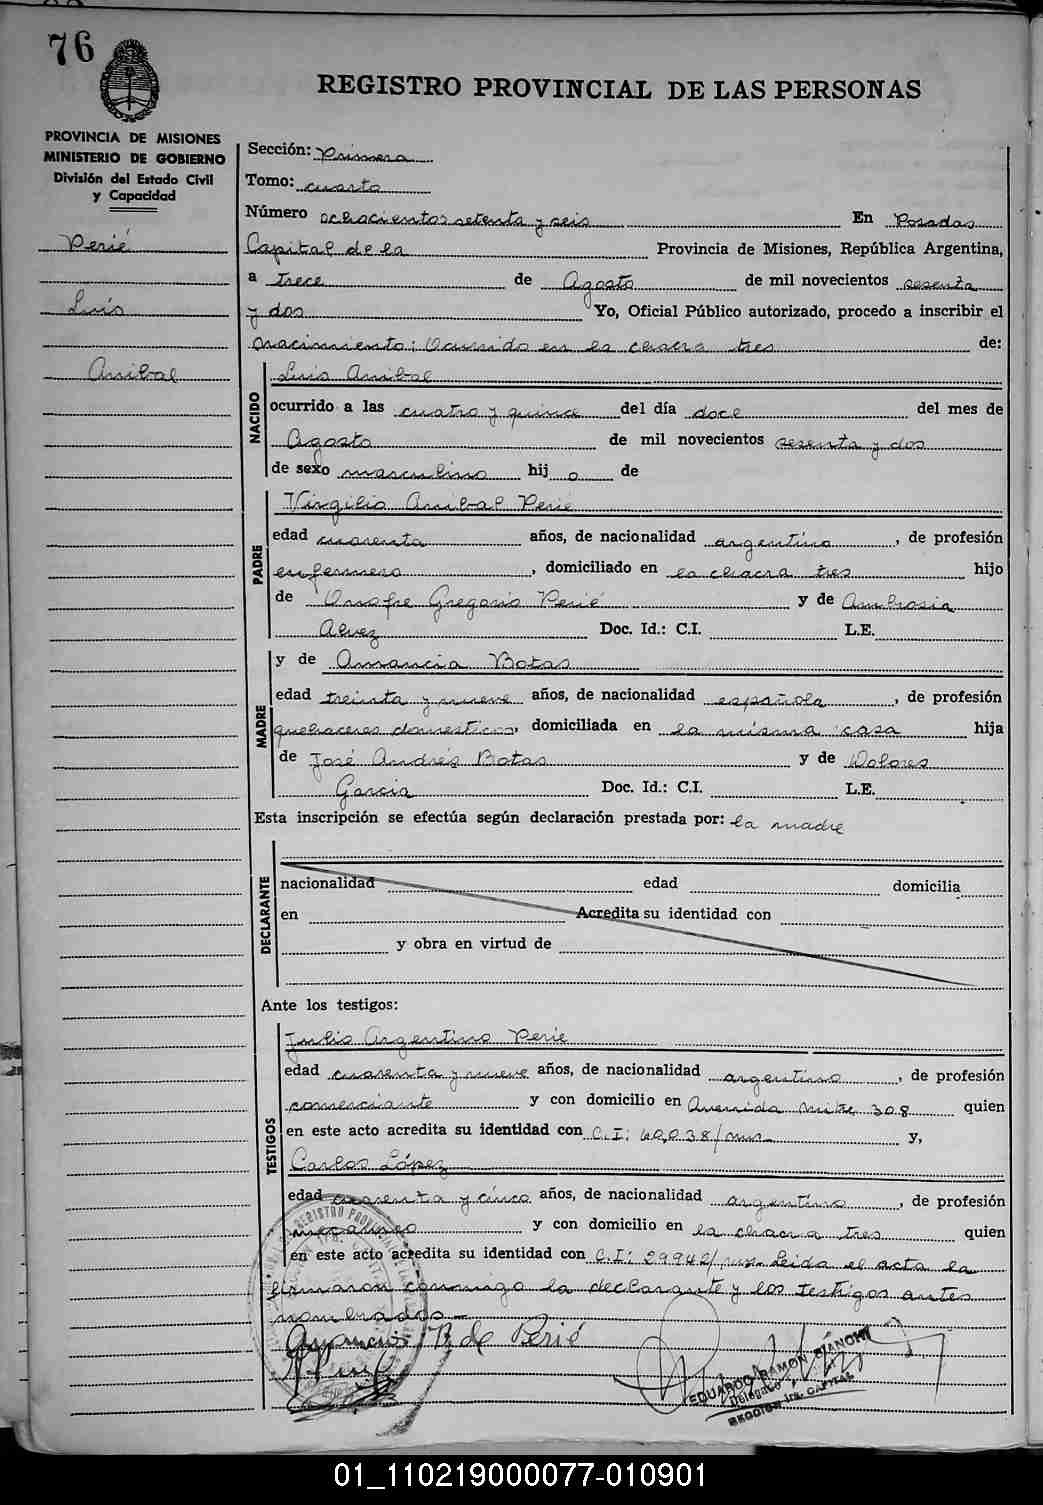 76
REGISTRO PROVINCIAL DE LAS PERSONAS
PROVINCIA DE MISIONES
MINISTERIO DE GOBIERNO
División del Estado Civil
y Capacidad
Perié
Luis
Anibal
Sección: Primera
Tomo: cuarto
Número ochocientos setenta y seis En Posadas
Capital de la Provincia de Misiones, República Argentina,
a trece de Agosto de mil novecientos sesenta
y dos Yo, Oficial Público autorizado, procedo a inscribir el
nacimiento: Ocurrido en la chacra tres de:
NACIDO
Luis Anibal
ocurrido a las cuatro y quince del día doce del mes de
Agosto de mil novecientos sesenta y dos
de sexo masculino hij o de
PADRE
Virgilio Anibal Perié
edad cuarenta años, de nacionalidad argentino, de profesión
enfermero, domiciliado en la chacra tres hijo
de Onofre Gregorio Perié y de Ambrosia
Alvez Doc. Id.: C.I. L.E.
MADRE
y de Amancia Botas
edad treinta y nueve años, de nacionalidad española, de profesión
quehaceres domesticos, domiciliada en la misma casa hija
de José Andrés Botas y de Dolores
Garcia Doc. Id.: C.I. L.E.
Esta inscripción se efectúa según declaración prestada por: la madre
DECLARANTE
nacionalidad edad domicilia
en Acredita su identidad con
y obra en virtud de
Ante los testigos:
TESTIGOS
Julio Argentino Perie
edad cuarenta y nueve años, de nacionalidad argentino, de profesión
comerciante y con domicilio en Avenida Mitre 308 quien
en este acto acredita su identidad con C.I: 60,038/mns. y,
Carlos López
edad cuarenta y cinco años, de nacionalidad argentino, de profesión
mecanico y con domicilio en la chacra tres quien
en este acto acredita su identidad con C.I: 29942/ Leida el acta la
firmaron conmigo la declarante y los testigos antes
nombrados.-
Amancia B de Perié
EDUARDO RAMON BIANCHI
Delegado
SECCION 1ra. CAPITAL
01_110219000077-010901